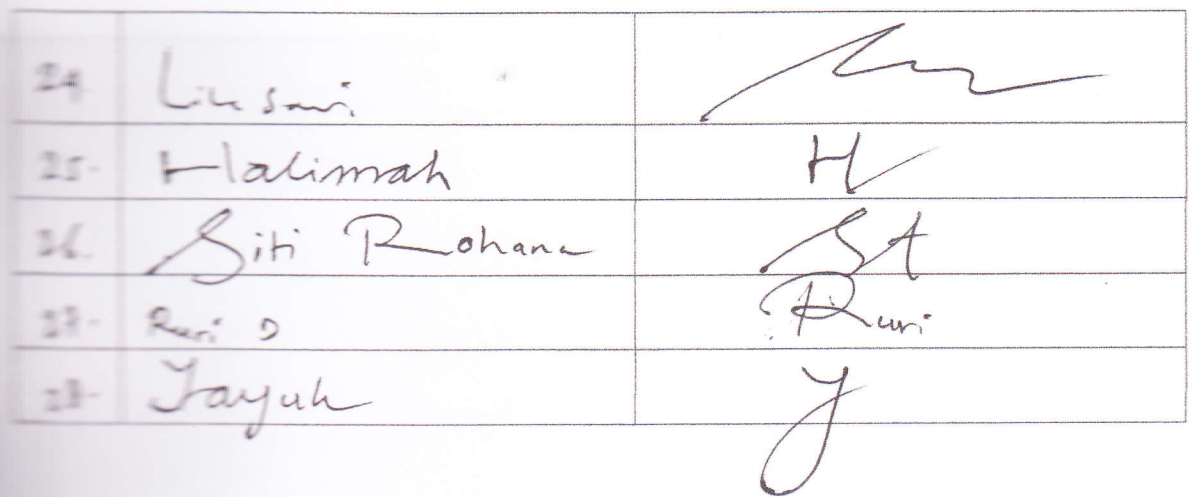 24. Lik Sawi
25- Halimmah H
26. Siti Rohana St
27- Ruri D Ruri
28- Yayuk Y